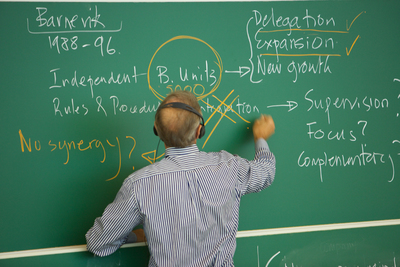 Barnevik
1988-96.
Delegation ✓
expansion ✓
New growth
Independent B. Units →
Rules & Procedu → Supervision?
No synergy?
Focus?
Complementary?